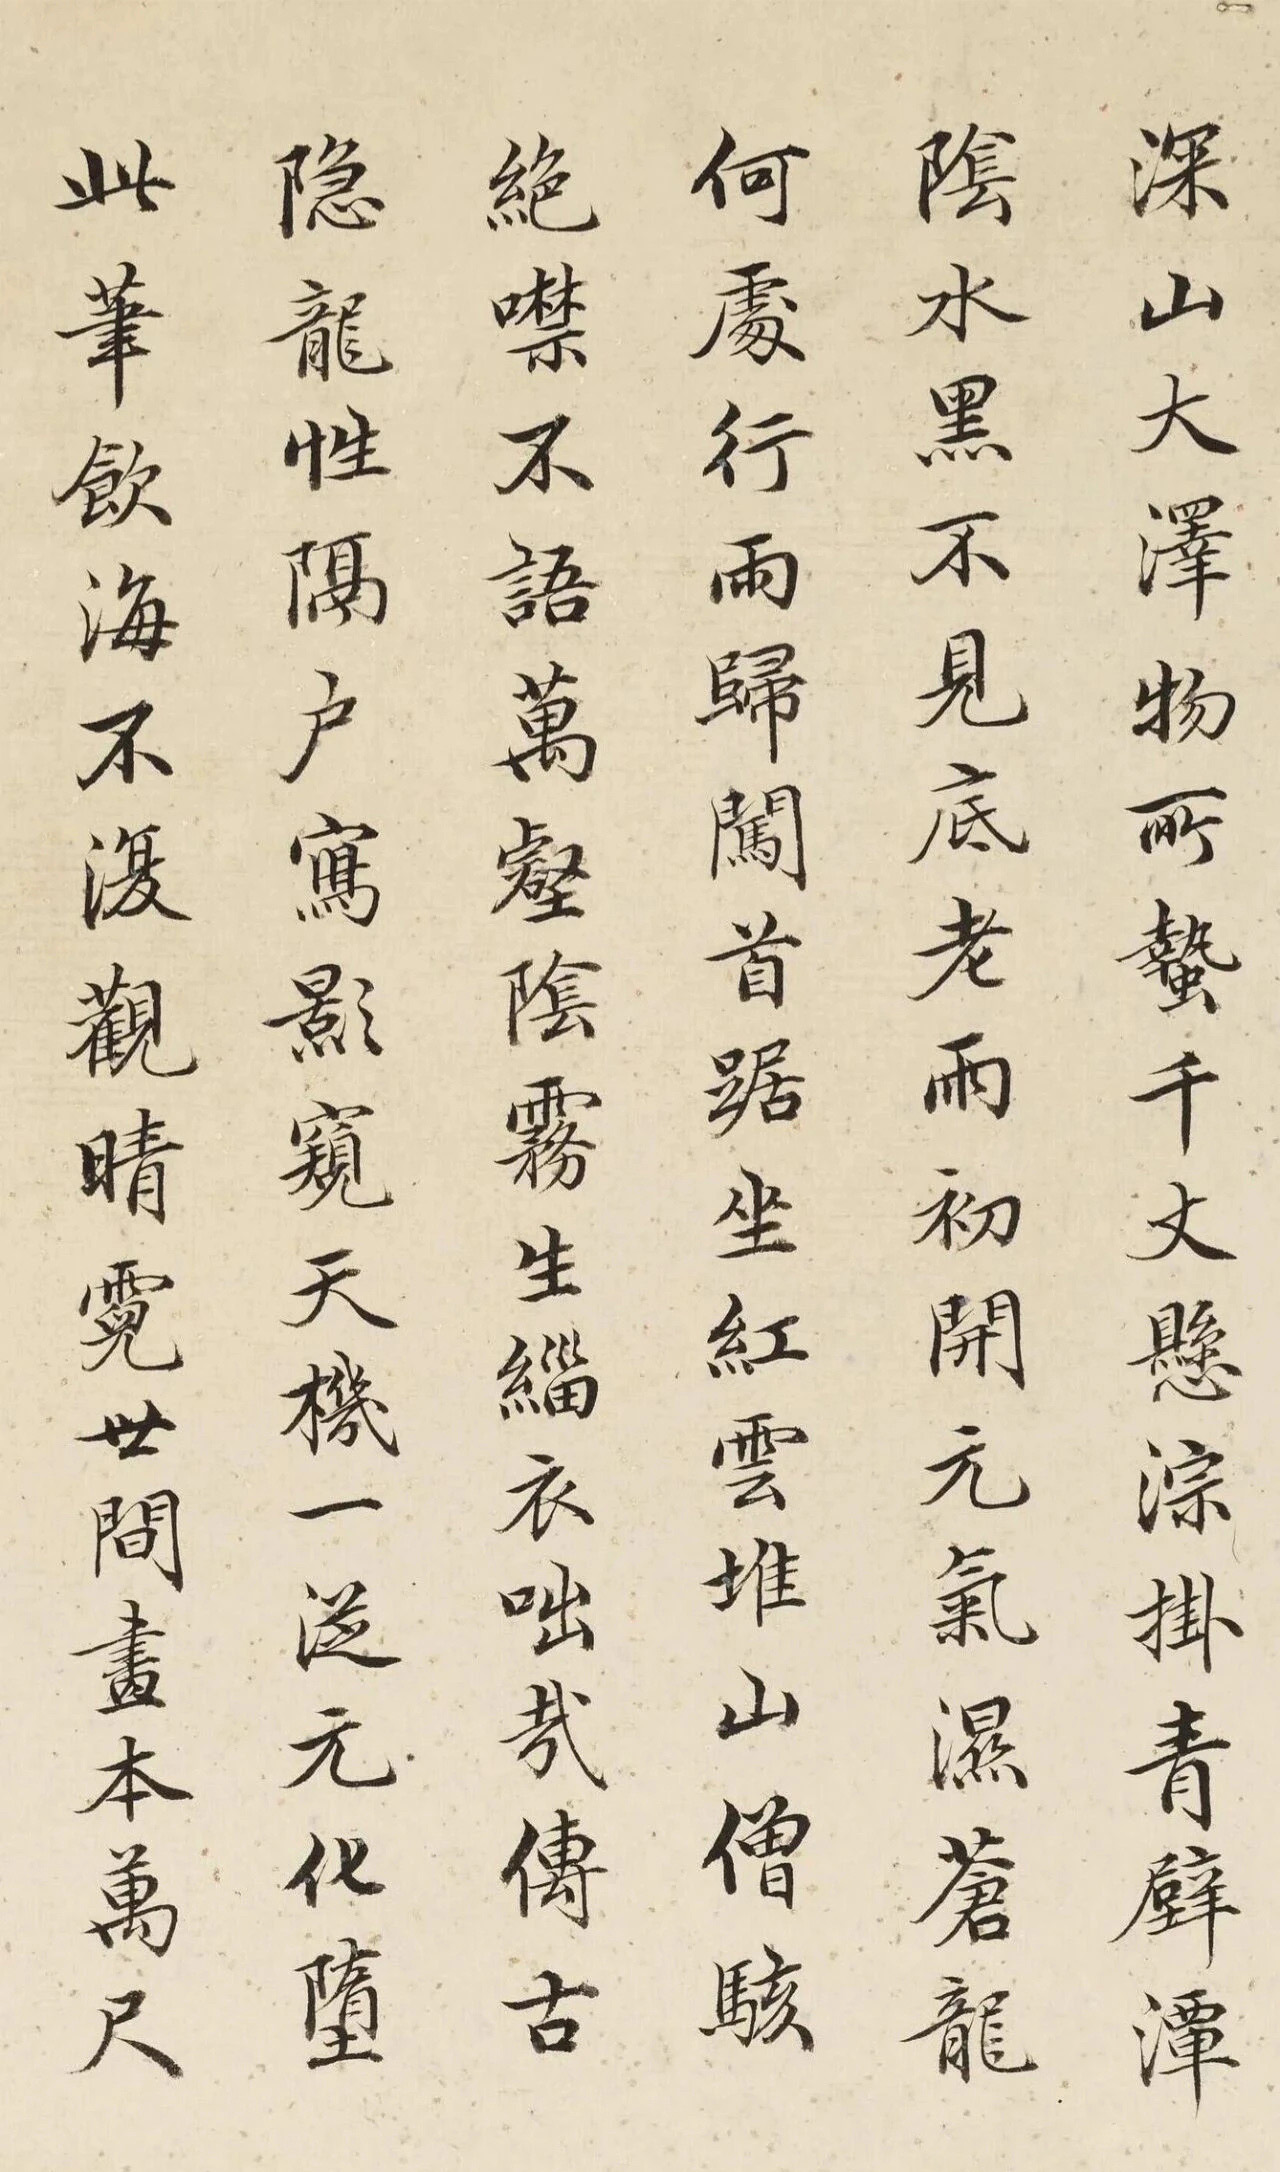 深山大澤物所蟄千丈懸淙掛青壁潭
陰水黑不見底老雨初開元氣濕蒼龍
何處行雨歸闖首踞坐紅雲堆山僧駭
絶噤不語萬壑陰霧生緇衣咄哉傳古
隐龍性隔户寫影窺天機一從元化墮
此筆飲海不復觀晴霓世間畫本萬尺